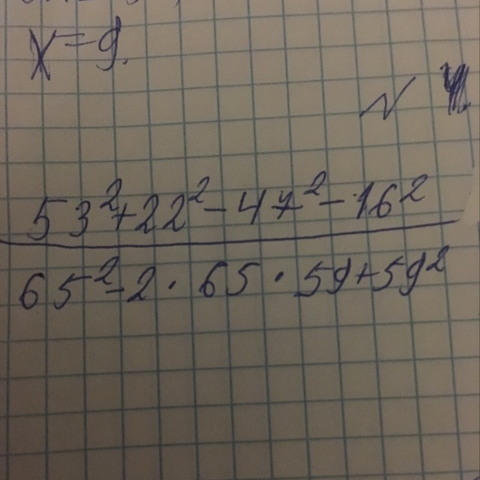 x = 9.
N 4
53²+22²-47²-16²
65²-2·65·59+59²